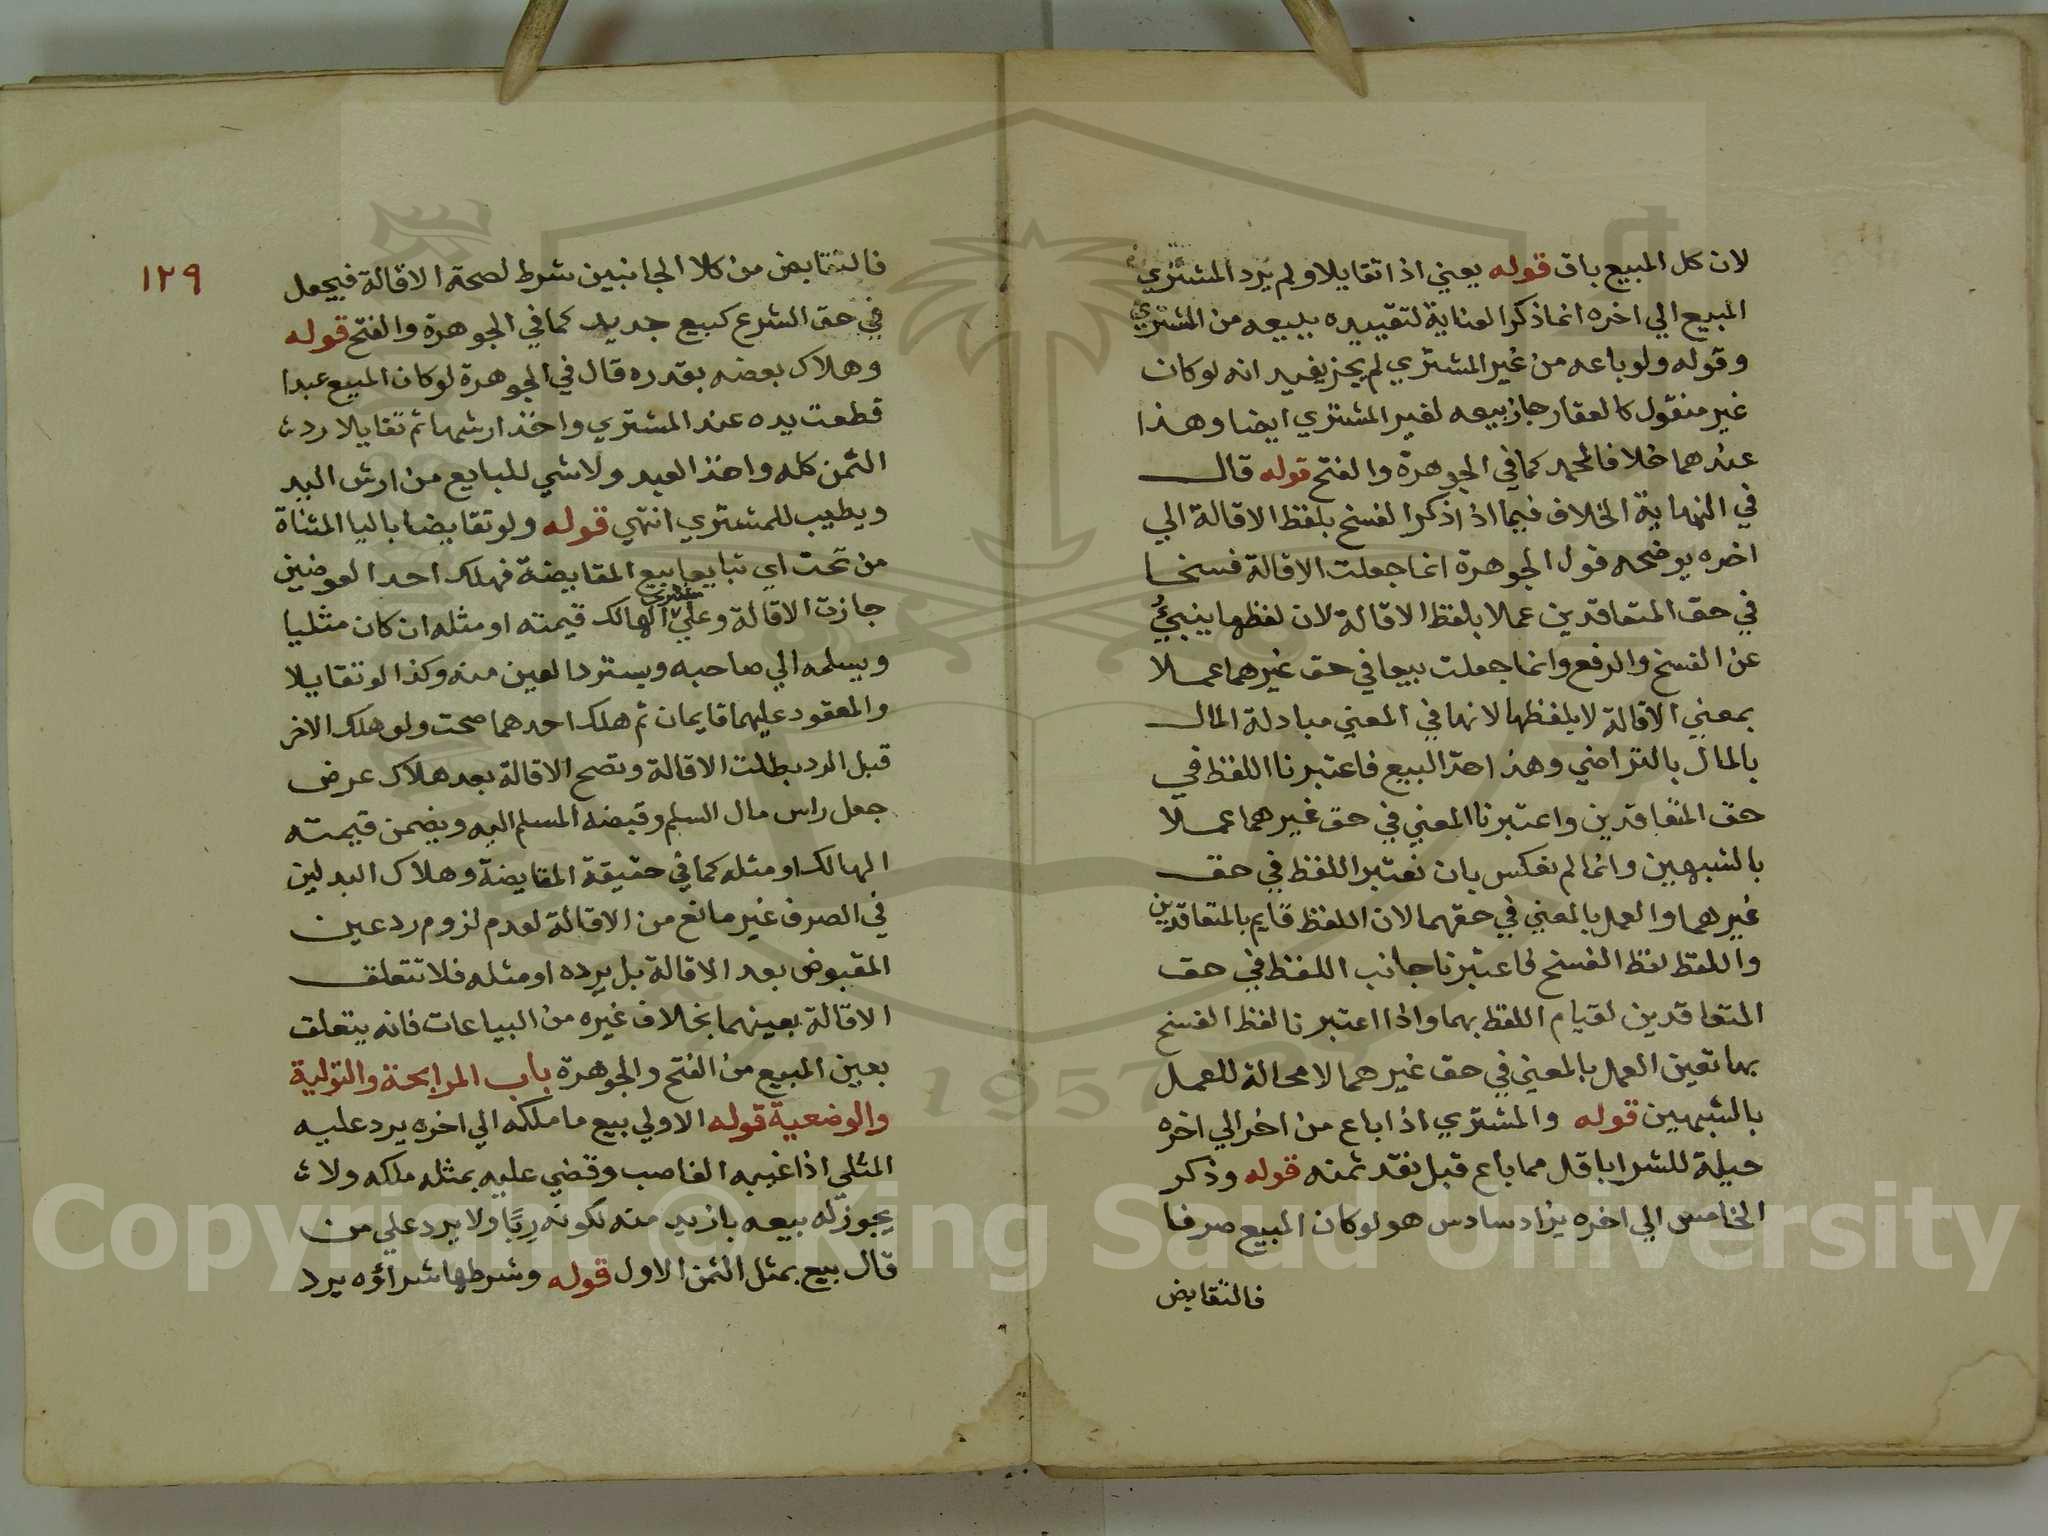 لان كل المبيع باق قوله يعني اذا تقايلا ولم يرد المشتري
المبيع الي اخره انما ذكر العناية لتقييده ببيعه من المشتري
وقوله ولو باعه من غير المشتري لم يجز يفيد انه لو كان
غير منقول كالعقار جاز بيعه لغير المشتري ايضا وهذا
عندهما خلافا لمحمد كما في الجوهرة والفتح قوله قال
في النهاية الخلاف فيما اذا ذكر الفسخ بلفظ الاقالة الي
اخره يوضحه قول الجوهرة انما جعلت الاقالة فسخا
في حق المتعاقدين عملا بلفظ الاقالة لان لفظها ينبئ
عن الفسخ والرفع وانما جعلت بيعا في حق غيرهما عملا
بمعني الاقالة لا بلفظها لانها في المعني مبادلة المال
بالمال بالتراضي وهذا حد البيع فاعتبرنا اللفظ في
حق المتعاقدين واعتبرنا المعني في حق غيرهما عملا
بالشبهين وانما لم نعكس بان نعتبر اللفظ في حق
غيرهما والعمل بالمعني في حقهما لان اللفظ قايم بالمتعاقدين
واللفظ لفظ الفسخ فاعتبرنا جانب اللفظ في حق
المتعاقدين لقيام اللفظ بهما واذا اعتبرنا لفظ الفسخ
بها تعين العمل بالمعني في حق غيرهما لا محالة للعمل
بالشبهين قوله والمشتري اذا باع من اخر الي اخره
حيلة للشرا باقل مما باع قبل نقد ثمنه قوله وذكر
الخامس الي اخره يزاد سادس هو لو كان المبيع صرفا
فالتقابض
١٢٩
فالتقابض من كلا الجانبين شرط لصحة الاقالة فيجعل
في حق الشرع كبيع جديد كما في الجوهرة والفتح قوله
وهلاك بعضه بقدره قال في الجوهرة لو كان المبيع عبدا
قطعت يده عند المشتري واخذ ارشها ثم تقايلا رد
الثمن كله واخذ العبد ولا شي للبايع من ارش اليد
ويطيب للمشتري انتهي قوله ولو تقايضا باليا المثناة
من تحت اي تبايعا بيع المقايضة فهلك احد العوضين
جازت الاقالة وعلي مشتري الهالك قيمته او مثله ان كان مثليا
ويسلمه الي صاحبه ويسترد العين منه وكذا لو تقايلا
والمعقود عليهما قايمان ثم هلك احدهما صحت ولو هلك الاخر
قبل الرد بطلت الاقالة وتصح الاقالة بعد هلاك عرض
جعل راس مال السلم وقبضه المسلم اليه ويضمن قيمته
الهالك او مثله كما في حقيقة المقايضة وهلاك البدلين
في الصرف غير مانع من الاقالة لعدم لزوم رد عين
المقبوض بعد الاقالة بل يرده او مثله فلا تتعلق
الاقالة بعينهما بخلاف غيره من البياعات فانه يتعلق
بعين المبيع من الفتح والجوهرة باب المرابحة والتولية
والوضعية قوله الاولي بيع ما ملكه الي اخره يرد عليه
المثلي اذا غيبه الغاصب وقضي عليه بمثله ملكه ولا
يجوز له بيعه بازيد منه لكونه ربًا ولا يرد علي من
قال بيع بمثل الثمن الاول قوله وشرطها شراؤه يرد
Copyright © King Saud University
1957